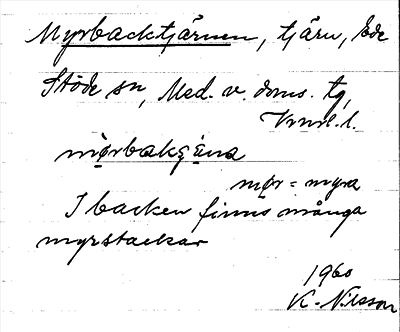 Myrbacktjärnen, tjärn, Ede
Stöde sn, Med. v. doms. tg,
Vnrl. l.
mørbakȩäna
mør = myra
I backen finns många
myrstackar
1960
K. Nilsson